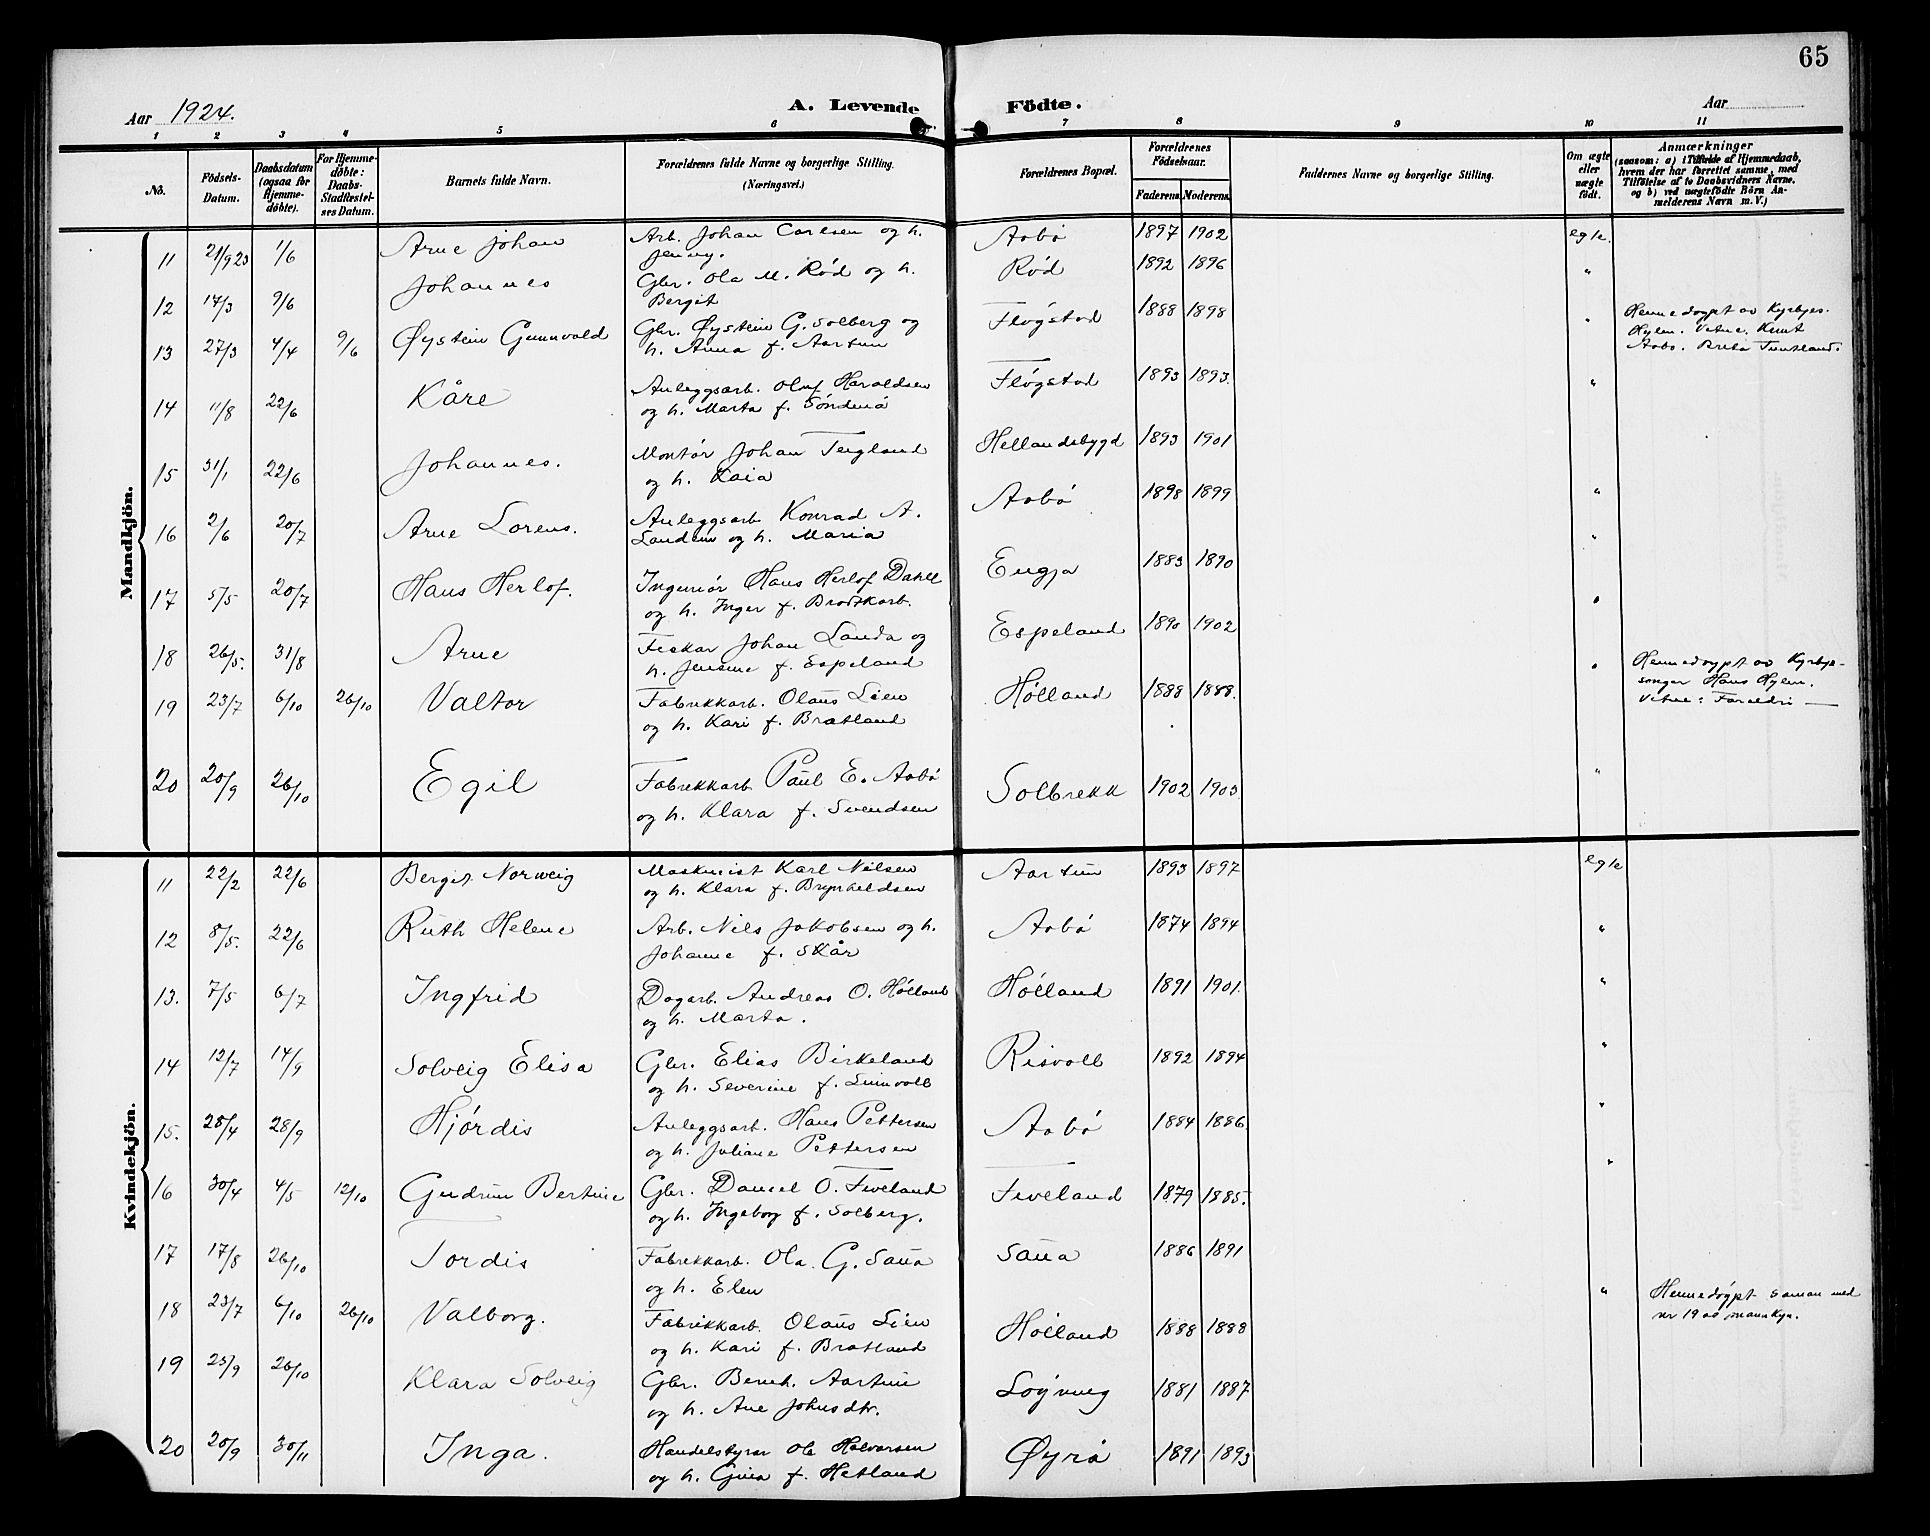 65
Aar 1924.
A. Levende Födte.
Aar
1 2 3 4 5 6 7 8 9 10 11
No. Födsels-Datum. Daabsdatum (ogsaa for Hjemme-döbte). For Hjemme-döbte: Daabs-Stadfæstel-ses Datum. Barnets fulde Navn. Forældrenes fulde Navne og borgerlige Stilling. (Næringsvei.) Forældrenes Bopæl. Forældrenes Födselsaar. Faderens Moderens Faddernes Navne og borgerlige Stilling. Om ægte eller uægte födt. Anmærkninger (saasom: a) i Tilfælde af Hjemmedaab, hvem der har forrettet samme, med Tilföielse af to Daabsvidners Navne, og b) ved uægtefödte Börn An-melderens Navn m. V.)
Mandkjön.
11 21/9 23 1/6 Arne Johan Arb. Johan Carlsen og h. Jenny. Aabø 1897 1902 egte.
12 17/3 9/6 Johannes Gbr. Ola M. Rød og h. Bergit Rød 1892 1896 "
13 27/3 4/4 9/6 Øystein Gunnvald Gbr. Øystein G. Solberg og h. Anna f. Aartun Fløgstad 1888 1898 " Heimedøypt av Kyrkjes. Hylen. Vitne. Knut Aabø. Brita Tuntland.
14 11/8 22/6 Kåre Anleggsarb. Oluf Haraldsen og h. Marta f. Søndenå Fløgstad 1893 1893. "
15 31/1 22/6 Johannes. Montør Johan Tengland og h. Kaia Hellandsbygd 1893 1901
16 2/6 20/7 Arne Lorens. Anleggsarb. Konrad A. Landem og h. Maria Aabø 1898 1899 "
17 5/5 20/7 Hans Herlof. Ingeniør Hans Herlof Dahll og h. Inger f. Brodtkorb. Eugja 1883 1890 "
18 26/5. 31/8 Arne Fiskar Johan Landa og h. Jensine f. Espeland Espeland 1890 1902 "
19 23/7 6/10 26/10 Valtor Fabrikkarb. Olaus Lien og h. Kari f. Bratland Hølland 1888 1888. " Heimedøypt av Kyrkje-songar Hans Hylen. Vitne: Foreldri
20 20/9 26/10 Egil Fabrikkarb. Paul E. Aabø og h. Klara f. Svendsen Solbrekk 1902 1903. "
Kvindekjön.
11 22/2 22/6 Bergit Norveig Maskinist Karl Nilsen og h. Klara f. Brynhildsen Aartun 1893 1897 egte
12 8/5. 22/6 Ruth Helene Arb. Nils Jakobsen og h. Johanne f. Skår Aabø 1874 1894 "
13. 7/5 6/7 Ingfrid Dagarb. Andreas O. Hølland og h. Marta. Hølland 1891 1901. "
14 12/7 14/9 Solveig Elisa Gbr. Elias Birkeland og h. Severine f. Risvoll 1892 1894 "
15. 28/4 28/9 Hjørdis Anleggsarb. Hans Pettersen og h. Juliane Pettersen Aabø 1884 1886. "
16 30/4 4/5 12/10 Gudrun Bertine Gbr. Daniel O. Fiveland og h. Ingeborg f. Solberg. Fiveland 1879 1885. "
17 17/8 26/10 Tordis Fabrikkarb. Ola G. Saua og h. Elen Saua 1886 1891
18 23/7 6/10 26/10 Valborg. Fabrikkarb. Olaus Lien og h. Kari f. Bratland Hølland 1888 1888 " Heimedøypt saman med nr 19 av mannkyn.
19 25/9 26/10 Klara Solveig Gbr. Bernh. Aartun og h. Ane Johnsdtr. 1881 1887
20 20/9 30/11 Inga. Handelstyrar Ole Halvorsen og h. Gina f. Hetland Øyrå 1891 1893